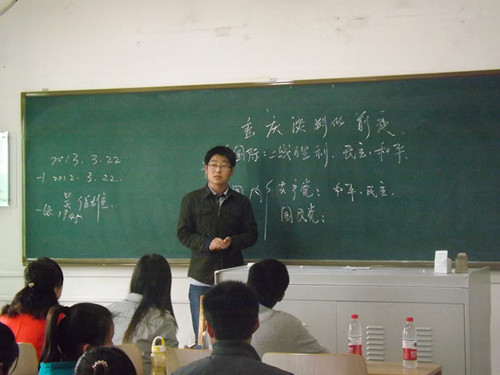 重庆谈判的前奏
2013.3.22
国际:二战胜利,民主,和平
-1 2012.3.22.
国内 共产党: 和平,民主.
1945
国民党: